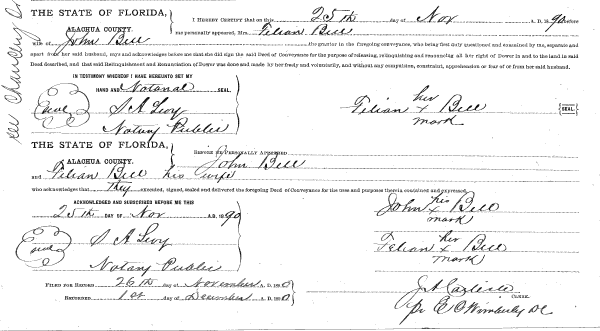 THE STATE OF FLORIDA,
ALACHUA COUNTY.
I HEREBY CERTIFY that on this 25th day of Nov A. D. 1890 before
me personally appeared, Mrs. Felian Bell
wife of John Bell the grantor in the foregoing conveyance, who being first duly questioned and examined by me, separate and
apart from her said husband, says and acknowledges before me that she did sign the said Deed of Conveyance for the purpose of releasing, relinquishing and renouncing all her right of Dower in and to the land in said
Deed described, and that said Relinquishment and Renunciation of Dower was done and made by her freely and voluntarily, and without any compulsion, constraint, apprehension or fear of or from her said husband.
IN TESTIMONY WHEREOF I HAVE HEREUNTO SET MY
HAND AND Notarial SEAL
Seal
S A Levy
Notary Public
Felian her x mark Bell {SEAL}
THE STATE OF FLORIDA,
ALACHUA COUNTY.
BEFORE ME PERSONALLY APPEARED John Bell
and Felian Bell his wife
who acknowledges that they executed, signed, sealed and delivered the foregoing Deed of Conveyance for the uses and purposes therein contained and expressed.
ACKNOWLEDGED AND SUBSCRIBED BEFORE ME THIS
25th DAY OF Nov A. D. 1890
Seal
S A Levy
Notary Public
John his x mark Bell
Felian her x mark Bell
FILED FOR RECORD 26th day of November A. D. 1890
RECORDED 1st day of December A. D. 1890
J A Carlisle
CLERK.
pr E C Wimberly DC